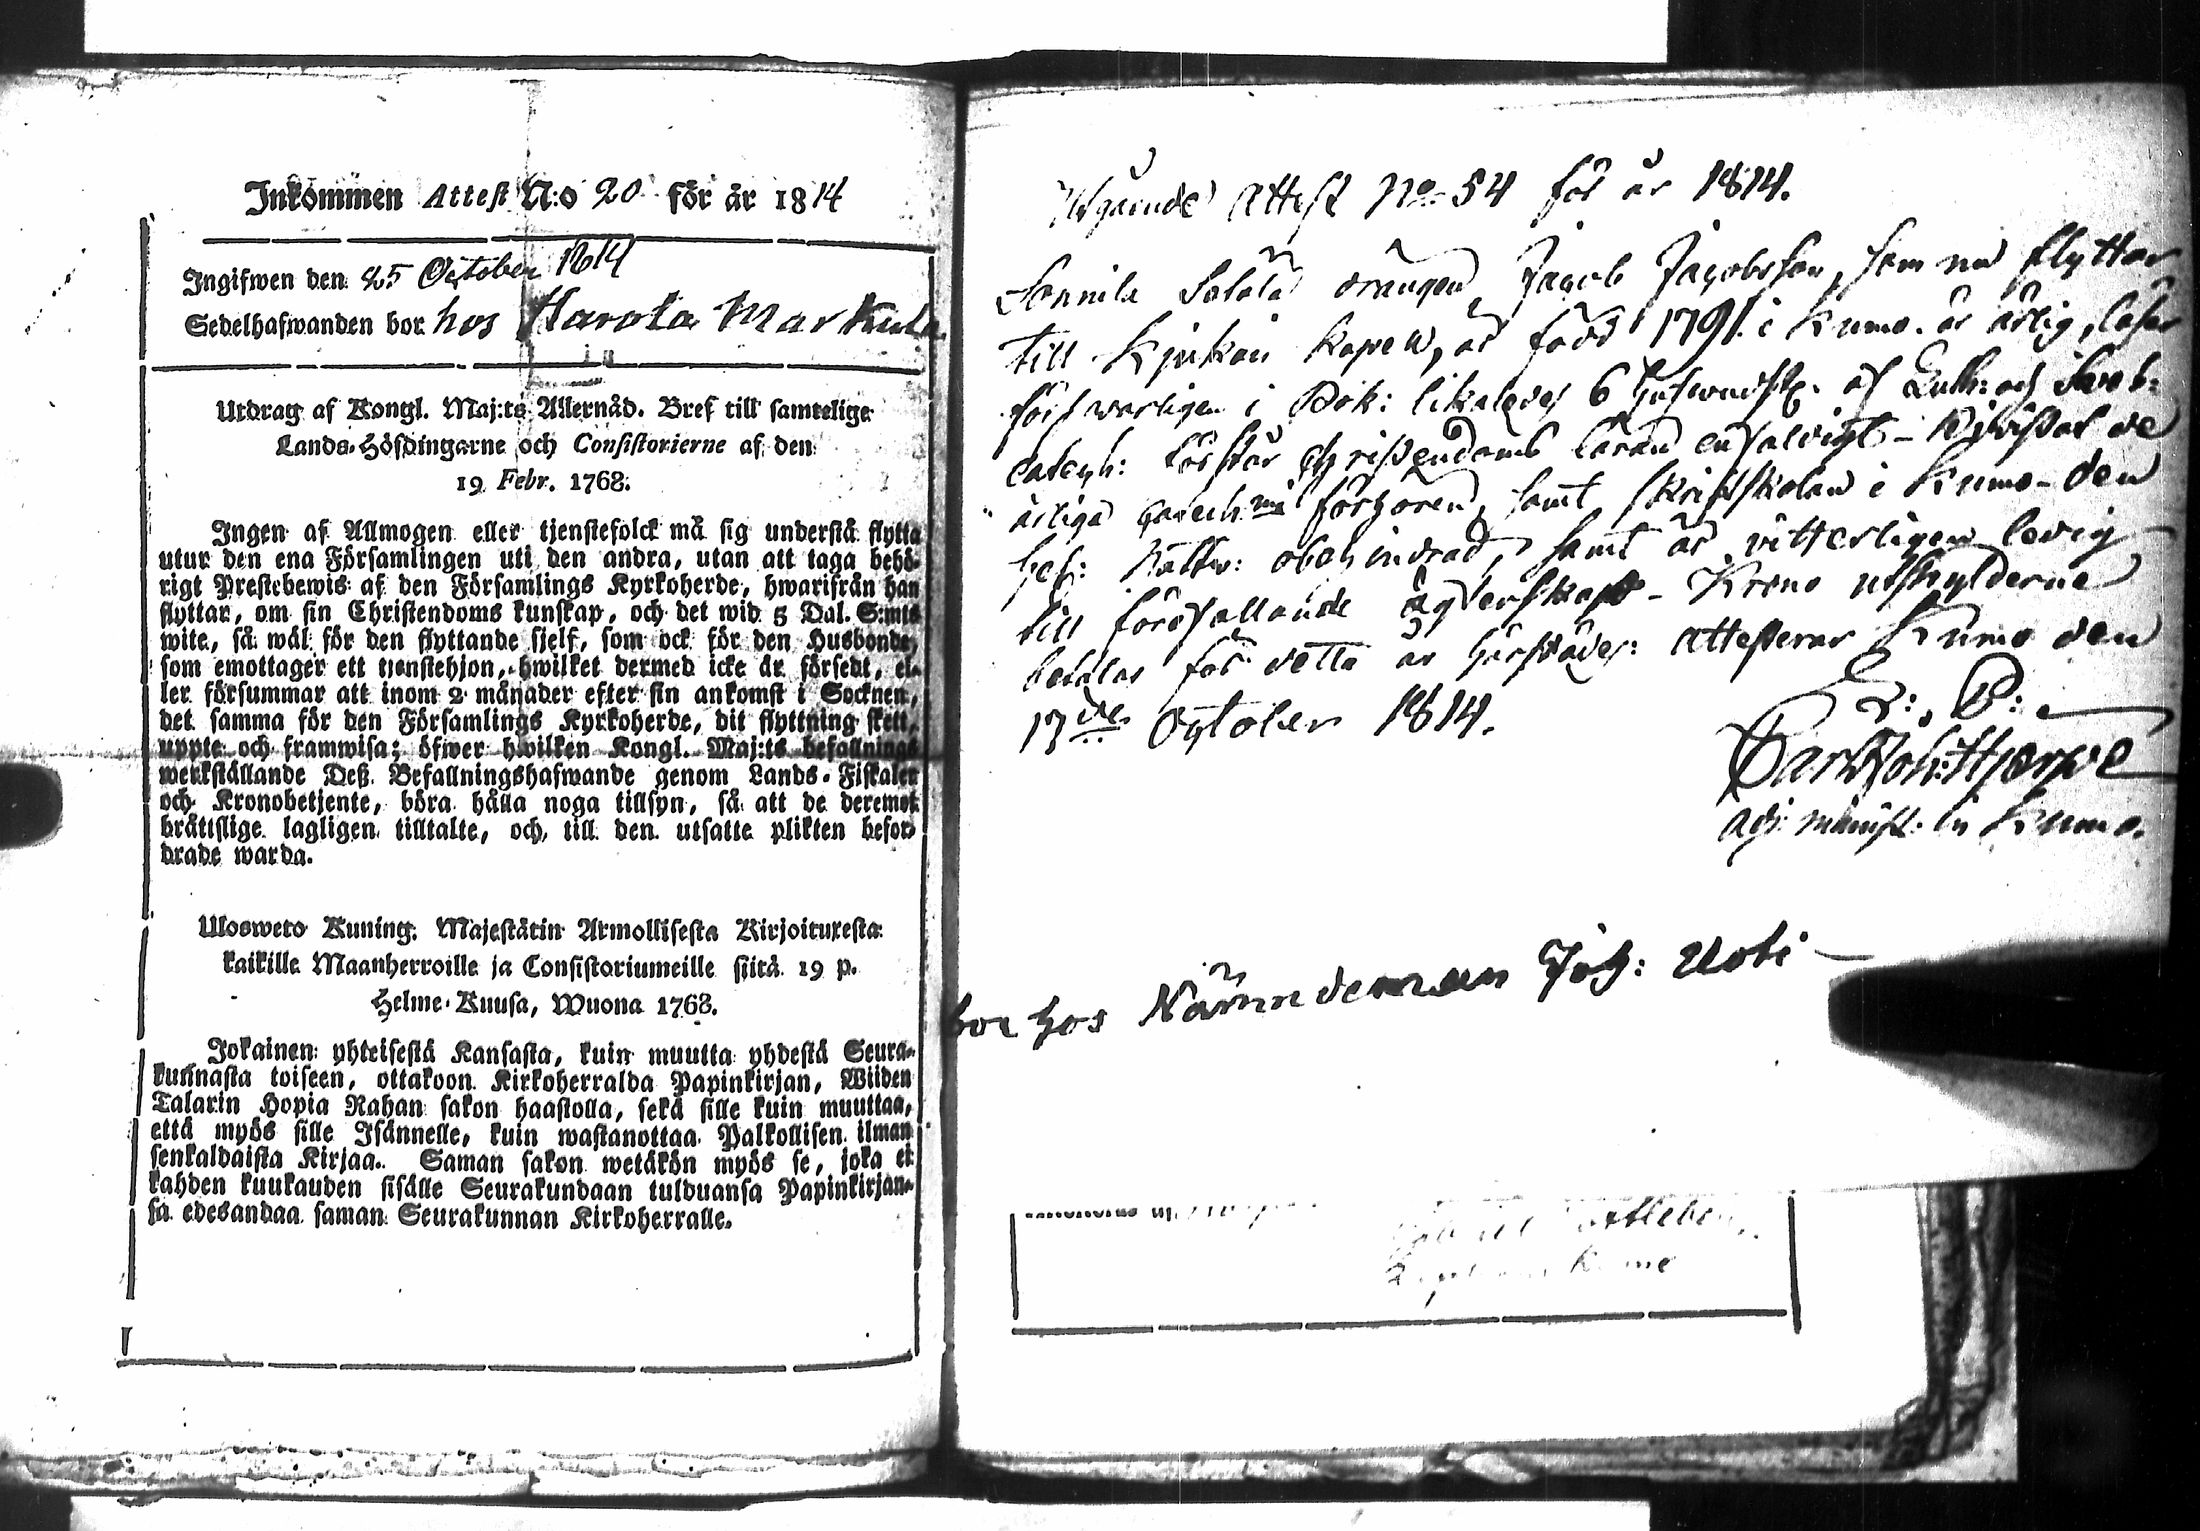 Inkommen Attest N:o 20 för år 1814
Ingifwen den 25 October 1814
Sedelhafwanden bor hos Harola Markula
Utdrag af Kongl. Maj:ts Allernåd. Bref till samtelige
Lands-Höfdingarne och Consistorierne af den
19 Febr. 1768.
Ingen af Allmogen eller tjenstefolck må sig understå flytta
utur den ena Församlingen uti den andra, utan att taga behö-
rigt Prestebewis af den Församlings Kyrkoherde, hwarifrån han
flyttar, om sin Christendoms kunskap, och det wid 5 Dal. S:mts
wite, så wäl för den flyttande sjelf, som ock för den Husbonde,
som emottager ett tjenstehjon, hwilket dermed icke är försedt, el-
ler försummar att inom 2 månader efter sin ankomst i Socknen,
det samma för den Församlings Kyrkoherde, dit flyttning skett,
uppte och framwisa; öfwer hwilken Kongl. Maj:ts befallnings
werkställande Deß Befallningshafwande genom Lands-Fiskaler
och Kronobetjente, böra hålla noga tillsyn, så att de deremot
bråttslige lagligen tilltalte, och till den utsatte plikten befor-
drade warda.
Ulosweto Kuning. Majestätin Armollisesta Kirjoituxesta
kaikille Maanherroille ja Consistoriumeille siitä 19 p.
Helme-Kuusa, Wuona 1768.
Jokainen yhteisestä Kansasta, kuin muutta yhdestä Seura-
kunnasta toiseen, ottakoon Kirkoherralda Papinkirjan, Wiiden
Talarin Hopia Rahan sakon haastolla, sekä sille kuin muuttaa,
että myös sille Isännelle, kuin wastanottaa Palkollisen ilman
senkaldaista Kirjaa. Saman sakon wetäkön myös se, joka ei
kahden kuukauden sisälle Seurakundaan tulduansa Papinkirjan-
sa edesandaa saman Seurakunnan Kirkoherralle.
Utgående Attest No 54 för år 1814.
Sonnila Salola drängen Jacob Jacobsson, som nu flyttar
till Kjukais kapell, är född 1791 i Kumo. är ärlig, läser
försvarligen i Bok: likaledes 6 hufwudst. af Luth: och Sveb:
catech: förstår christendoms läran enfaldigt - Bivistat de
årliga catech:ms förhören, samt skriftskolan i Kumo - den
hel: Nattv: obehindrad, samt är vitterligen ledig
till förefallande ägtenskap - Krono utskylderne
betalas för detta år härstädes: attesterar Kumo den
17de October 1814.
L:. P:.
Carl Joh: Hjerpe
adj. minist: in Kumo.
bor hos Nämndeman Joh: Uoti
Kumo